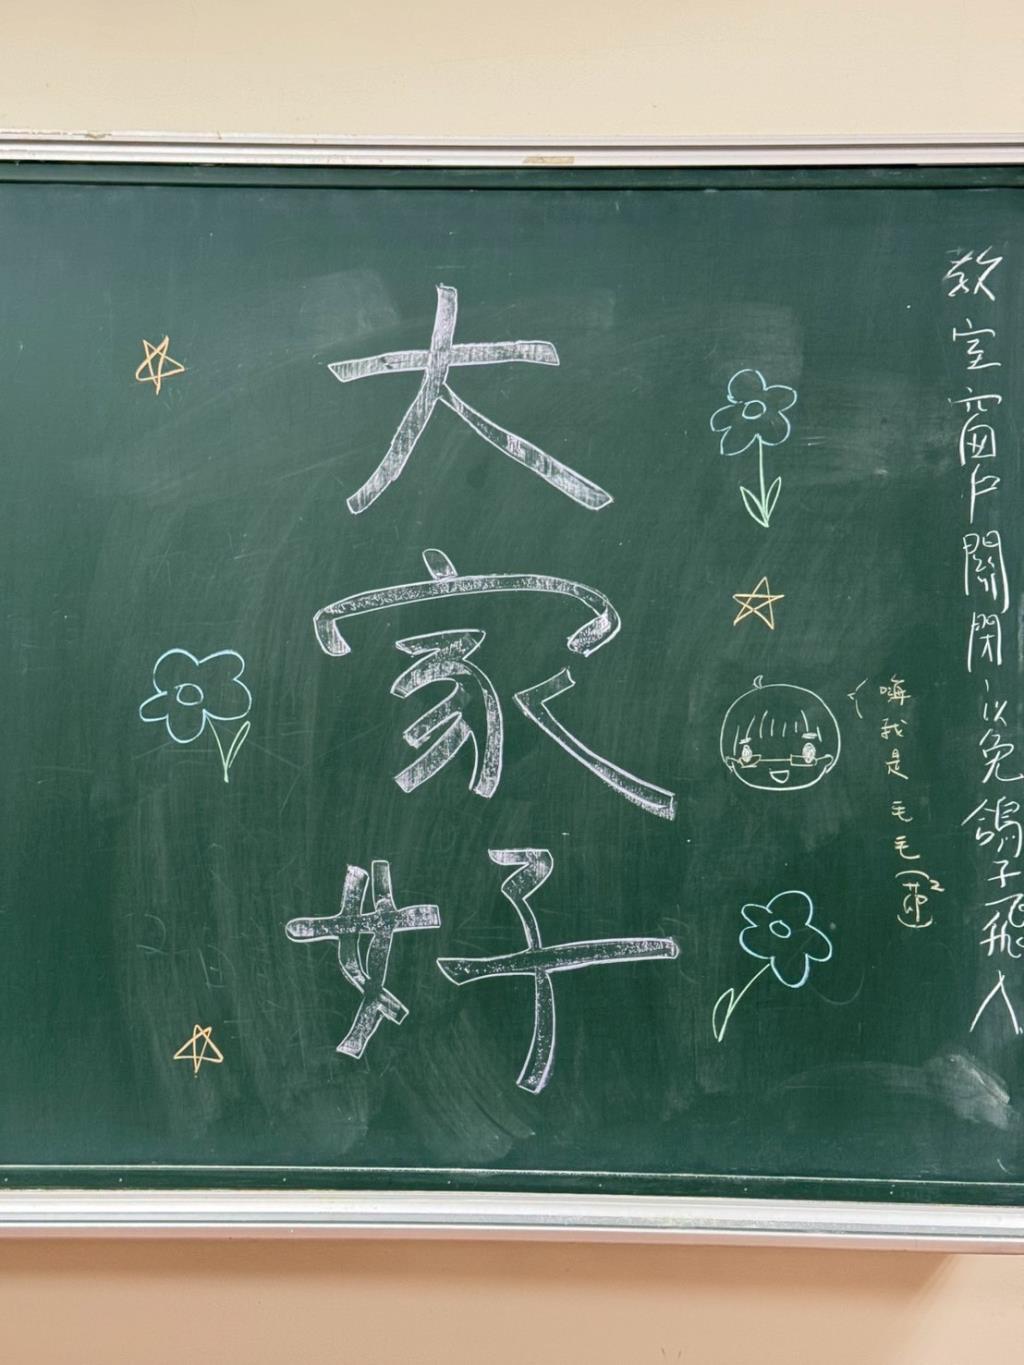 教室窗戶關閉以免鴿子飛入
嗨我是毛毛
大家好